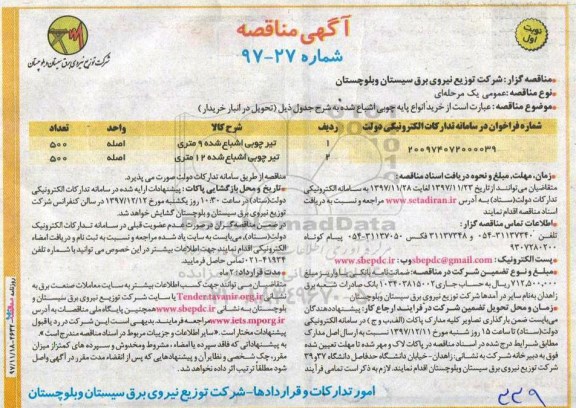 آگهی مناقصه
شماره ۲۷-۹۷
نوبت اول
شرکت توزیع نیروی برق سیستان و بلوچستان
مناقصه گزار: شرکت توزیع نیروی برق سیستان وبلوچستان
نوع مناقصه: عمومی یک مرحله‌ای
موضوع مناقصه: عبارت است از خرید انواع پایه چوبی اشباع شده به شرح جدول ذیل (تحویل در انبار خریدار)
شماره فراخوان در سامانه تدارکات الکترونیکی دولت ردیف شرح کالا واحد تعداد
۲۰۰۹۷۴۰۷۲۰۰۰۰۳۹
۱ تیر چوبی اشباع شده ۹ متری اصله ۵۰۰
۲ تیر چوبی اشباع شده ۱۲ متری اصله ۵۰۰
زمان، مهلت، مبلغ و نحوه دریافت اسناد مناقصه:
متقاضیان می‌توانند از تاریخ ۱۳۹۷/۱۱/۲۳ لغایت ۱۳۹۷/۱۱/۲۸ به سامانه الکترونیکی
دولت(ستاد) به آدرس www.setadiran.ir مراجعه و نسبت به دریافت
اسناد مناقصه اقدام نمایند
اطلاعات تماس مناقصه گزار:
تلفن ۳۱۱۳۷۳۴۰-۰۵۴ و ۳۱۱۳۷۳۴۸ فکس ۳۱۱۳۷۰۵۰-۰۵۴ پیام کوتاه
۹۳۰۷۲۸۰۲۰۰
پست الکترونیک: sbepdc@gmail.com وب: www.sbepdc.ir
مبلغ و نوع تضمین شرکت در مناقصه: ضمانتنامه بانکی معتبر
۷۱۲,۵۰۰,۰۰۰ ریال به حساب جاری ۱۰۳۴۰۲۸۱۵۰۰۲ بانک صادرات شعبه برق
زاهدان به نام سایر در آمدها شرکت توزیع نیروی برق سیستان وبلوچستان
زمان و محل تحویل تضمین شرکت در فرآیند ارجاع کار:
دولت(ستاد) تا ساعت ۱۵ روز شنبه مورخ ۱۳۹۷/۱۲/۱۱ نسبت به ارسال اصل مدارک
مطابق شرایط درج شده در اسناد مناقصه در پاکات لاک و مهر شده تا مهلت تعیین شده
فوق به دبیرخانه شرکت به نشانی: زاهدان - خیابان دانشگاه حدفاصل دانشگاه ۳۷ و ۳۹
شرکت توزیع نیروی برق سیستان وبلوچستان اقدام نمایند، لازم به ذکر است تمامی فرآیند
مناقصه از طریق سامانه تدارکات دولت صورت می پذیرد.
تاریخ و محل بازگشایی پاکات: پیشنهادات ارایه شده در سامانه تدارکات الکترونیکی
دولت(ستاد) در ساعت ۱۰:۳۰ روز یکشنبه مورخ ۱۳۹۷/۱۲/۱۲ در سالن کنفرانس شرکت
توزیع نیروی برق سیستان و بلوچستان گشایش خواهد شد.
در ضمن مناقصه گران در صورت عدم عضویت قبلی در سامانه تدارکات الکترونیکی
دولت(ستاد)، می‌بایست به سایت یاد شده مراجعه و نسبت به ثبت نام و دریافت امضاء
الکترونیکی اقدام نمایند جهت اطلاعات بیشتر در این خصوص می توانید با شماره تلفن
۴۱۹۳۴-۰۲۱ تماس حاصل فرمایید
مدت قرارداد: ۲ ماه
متقاضیان می توانند جهت کسب اطلاعات بیشتر به سایت معاملات صنعت برق به
آدرس Tender.tavanir.org.ir یا سایت شرکت توزیع نیروی برق سیستان و
بلوچستان به نشانی www.sbepdc.ir و همچنین پایگاه ملی مناقصات به آدرس
www.iets.mporg.ir مراجعه فرمایند، بدیهی است این شرکت در رد یا قبول
پیشنهادات مختار است.* سایر اطلاعات و جزئیات مربوط در اسناد مناقصه مندرج است.*
به پیشنهاداتی که فاقد سپرده یا امضاء، مشروط و مخدوش و سپرده های کمتر از میزان
مقرر، چک شخصی و نظایر آن و پیشنهادهایی که پس از انقضاء مدت مقرر در آگهی واصل
شود مطلقاً ترتیب اثر داده نخواهد شد.
امور تدارکات و قراردادها-شرکت توزیع نیروی برق سیستان وبلوچستان
۹۷/۱۱/۱۸-۴۶۳۲
۳۳۹